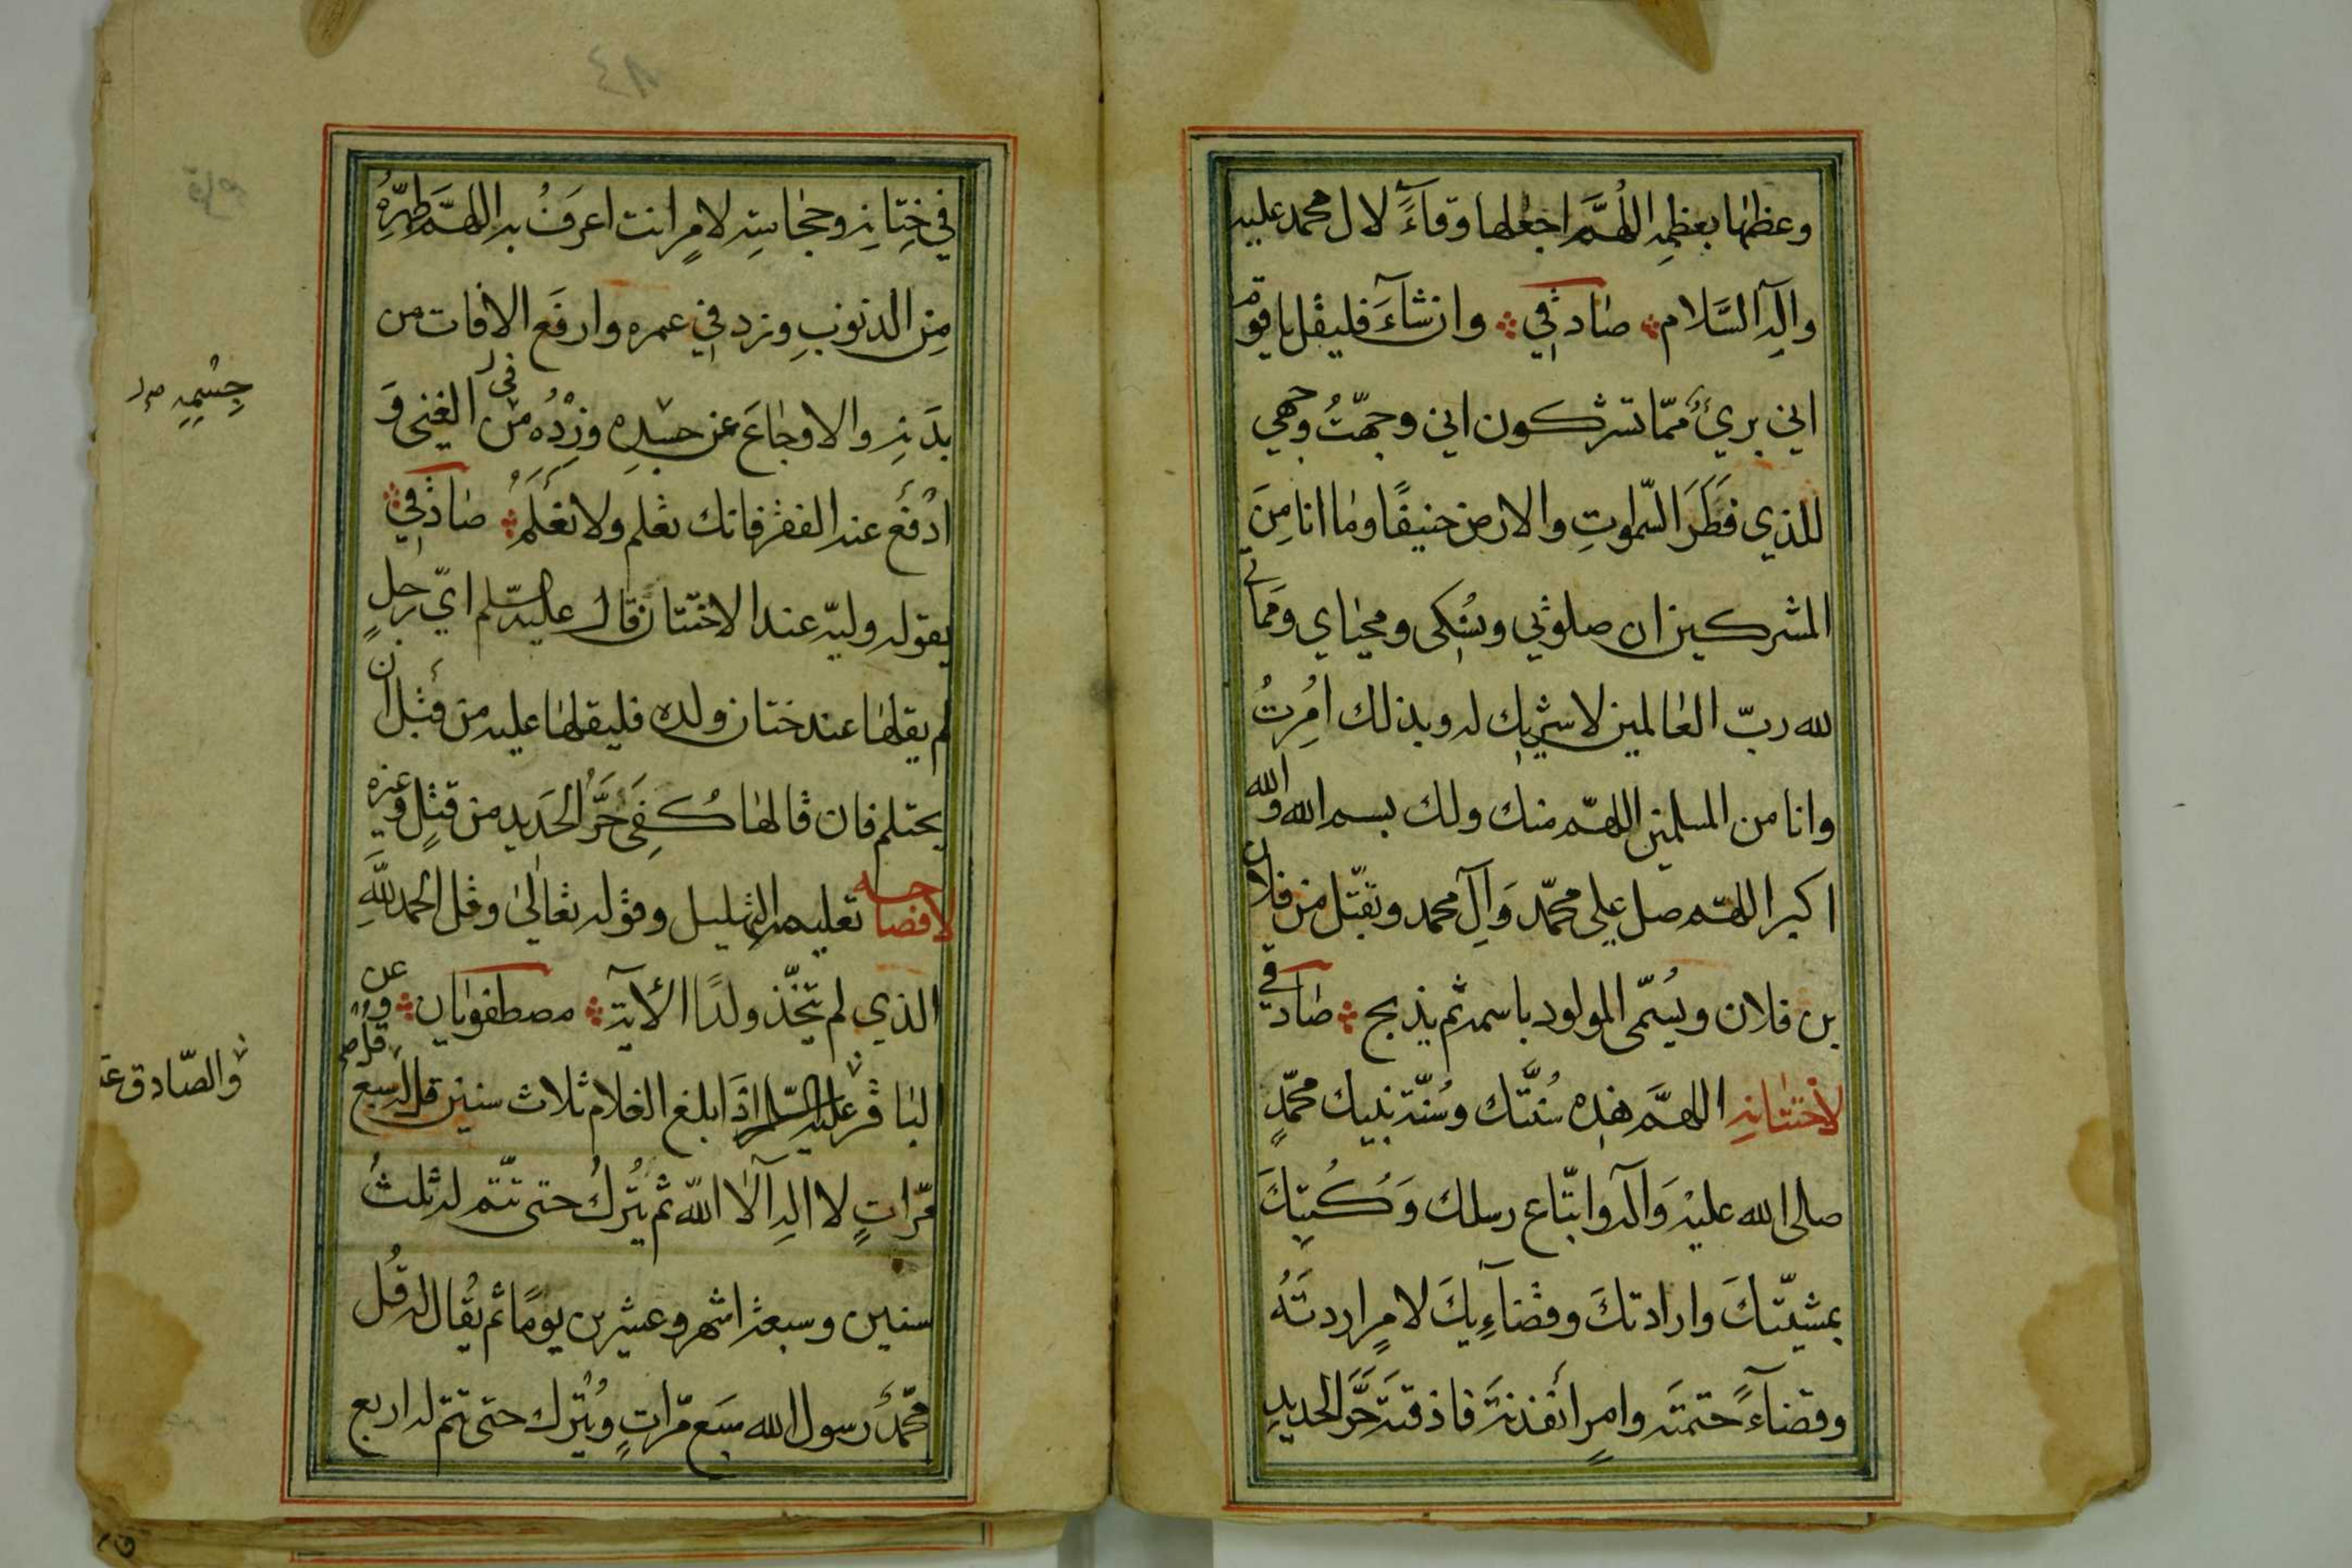 وعظمها بعظمه اللّهمّ اجعلها وقآءً لال محمد عليه
واله السّلام صادقي وان شآءَ فليقل يا قوم
اني بريءٌ ممّا تشركون اني وجّهتُ وجهي
للذي فَطَرَ السّموتِ والارض حنيفًا وما انا مِنَ
المشركين ان صلوتي ونسُكي ومحياي ومَماتي
لله ربّ العالمين لا شريك له وبذلك اُمِرتُ
وانا من المسلمين اللهمّ منك ولك بسم الله والله
اكبر اللهمّ صل على محمّد وَآلِ محمد وتقبّل من فلان
بن فلان ويُسَمّى المولود باسمه ثم يذبح صادقي
لاختتانه اللهمَّ هذه سُنَّتك وسُنّة نبيك محمّدٍ
صلى الله عليْه وَآله واتّباع رسلك وَكُتبِكَ
بمشيّتكَ وارادتكَ وقضآءِيكَ لامرٍ اردتَهُ
وقضآءً حتمتَه وامرٍ أنفذتَه فاذقتَه حَرَّ الحديدِ
٨٤
في خِتانِه وحجامتِه لامرٍ انت اعرَفُ به اللهمَّ طهّرْهُ
مِن الذنوبِ وزد في عمره وارفَع الافات من
بدَنِه والاوجاعَ عن جسَدِه وزِدْهُ من الغِنى وَ
في
جِسْمِهِ
ادْفَع عنه الفقر فانك تعلم ولا نَعْلَمُ صادقي
يقوله وليّه عند الاختتان قال عليه السّلم ايّ رجلٍ
لم يقلها عند ختان ولده فليقلها عليه من قَبْل ان
يحتلم فان قالها كُفِيَ حَرَّ الحَديد من قتلٍ وغيره
لافصاحه تعليمه التهليل وقوله تعالى وقل الحمد للّهِ
الذي لم يتّخذ ولدًا الاية مصطفويان وعن
الباقر عليه السّلم اذا بلغ الغلام ثلاث سنين قل له سبع
والصّادق
مرّاتٍ لا اله الّا اللّه ثم يُتْركُ حتى تتّم له ثلثُ
سنين وسبعة اشهر وعشرين يومًا ثم يُقال له قُل
محمّدٌ رسول الله سبَع مرّاتٍ ويُتْرك حتى تتمّ له اربع